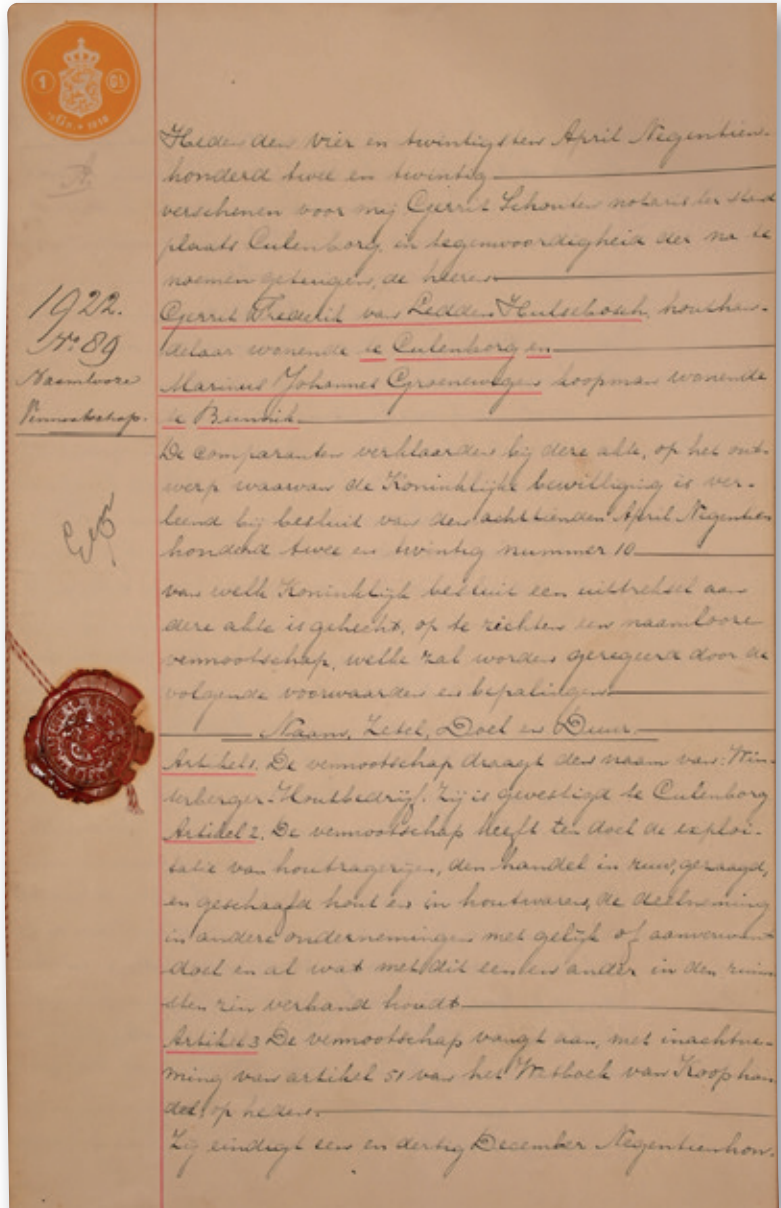 1 Gld
1922.
No 89
Naamlooze
Vennootschap.
Heden den vier en twintigsten April Negentien-
honderd twee en twintig
verschenen voor mij Gerrit Schouten notaris ter stand
plaats Culenborg, in tegenwoordigheid der na te
noemen getuigen, de heeren
Gerrit Frederik van Ledden Hulsebosch, houthan-
delaar wonende te Culenborg en
Marinus Johannes Groenewegen koopman wonende
te Bunnik.
De comparanten verklaarden bij deze akte, op het ont-
werp waarvan de Koninklijke bewilliging is ver-
leend bij besluit van den achttienden April Negentien
honderd twee en twintig nummer 10
van welk Koninklijk besluit een uittreksel aan
deze akte is gehecht, op te richten een naamlooze
vennootschap, welke zal worden geregeerd door de
volgende voorwaarden en bepalingen
Naam, Zetel, Doel en Duur.
Artikel 1. De vennootschap draagt den naam van: Win-
terberger-Houtbedrijf. Zij is gevestigd te Culenborg
Artikel 2. De vennootschap heeft ten doel de exploi-
tatie van houtzagerijen, den handel in ruw, gezaagd,
en geschaafd hout en in houtwaren, de deelneming
in andere ondernemingen met gelijk of aanverwant
doel en al wat met dit een en ander in den ruim
sten zin verband houdt
Artikel 3 De vennootschap vangt aan, met inachtne-
ming van artikel 51 van het Wetboek van Koophan
del, op heden.
Zij eindigt een en dertig December Negentienhon-